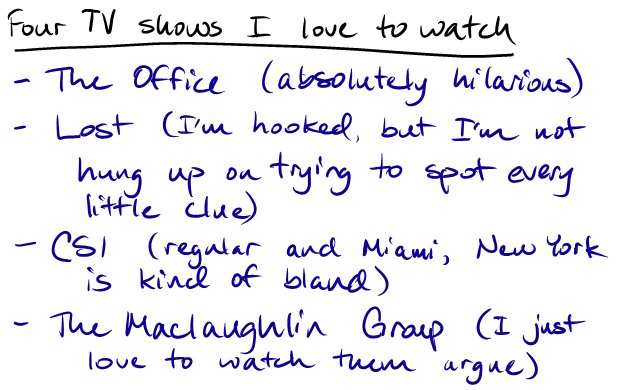 Four TV shows I love to watch
- The Office (absolutely hilarious)
- Lost (I'm hooked, but I'm not
hung up on trying to spot every
little clue)
- CSI (regular and Miami, New York
is kind of bland)
- The Maclaughlin Group (I just
love to watch them argue)